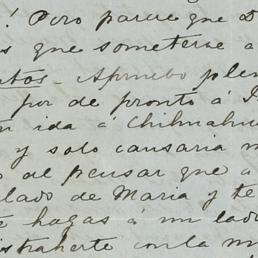 ! Pero parece que D
s que someterse a
ntos - Apruebo plen
por de pronto á I
n ida á Chihuahu
y solo causaria m
o al pensar que a
lado de Maria y te
e hagas á mi lado
istraherte con la m